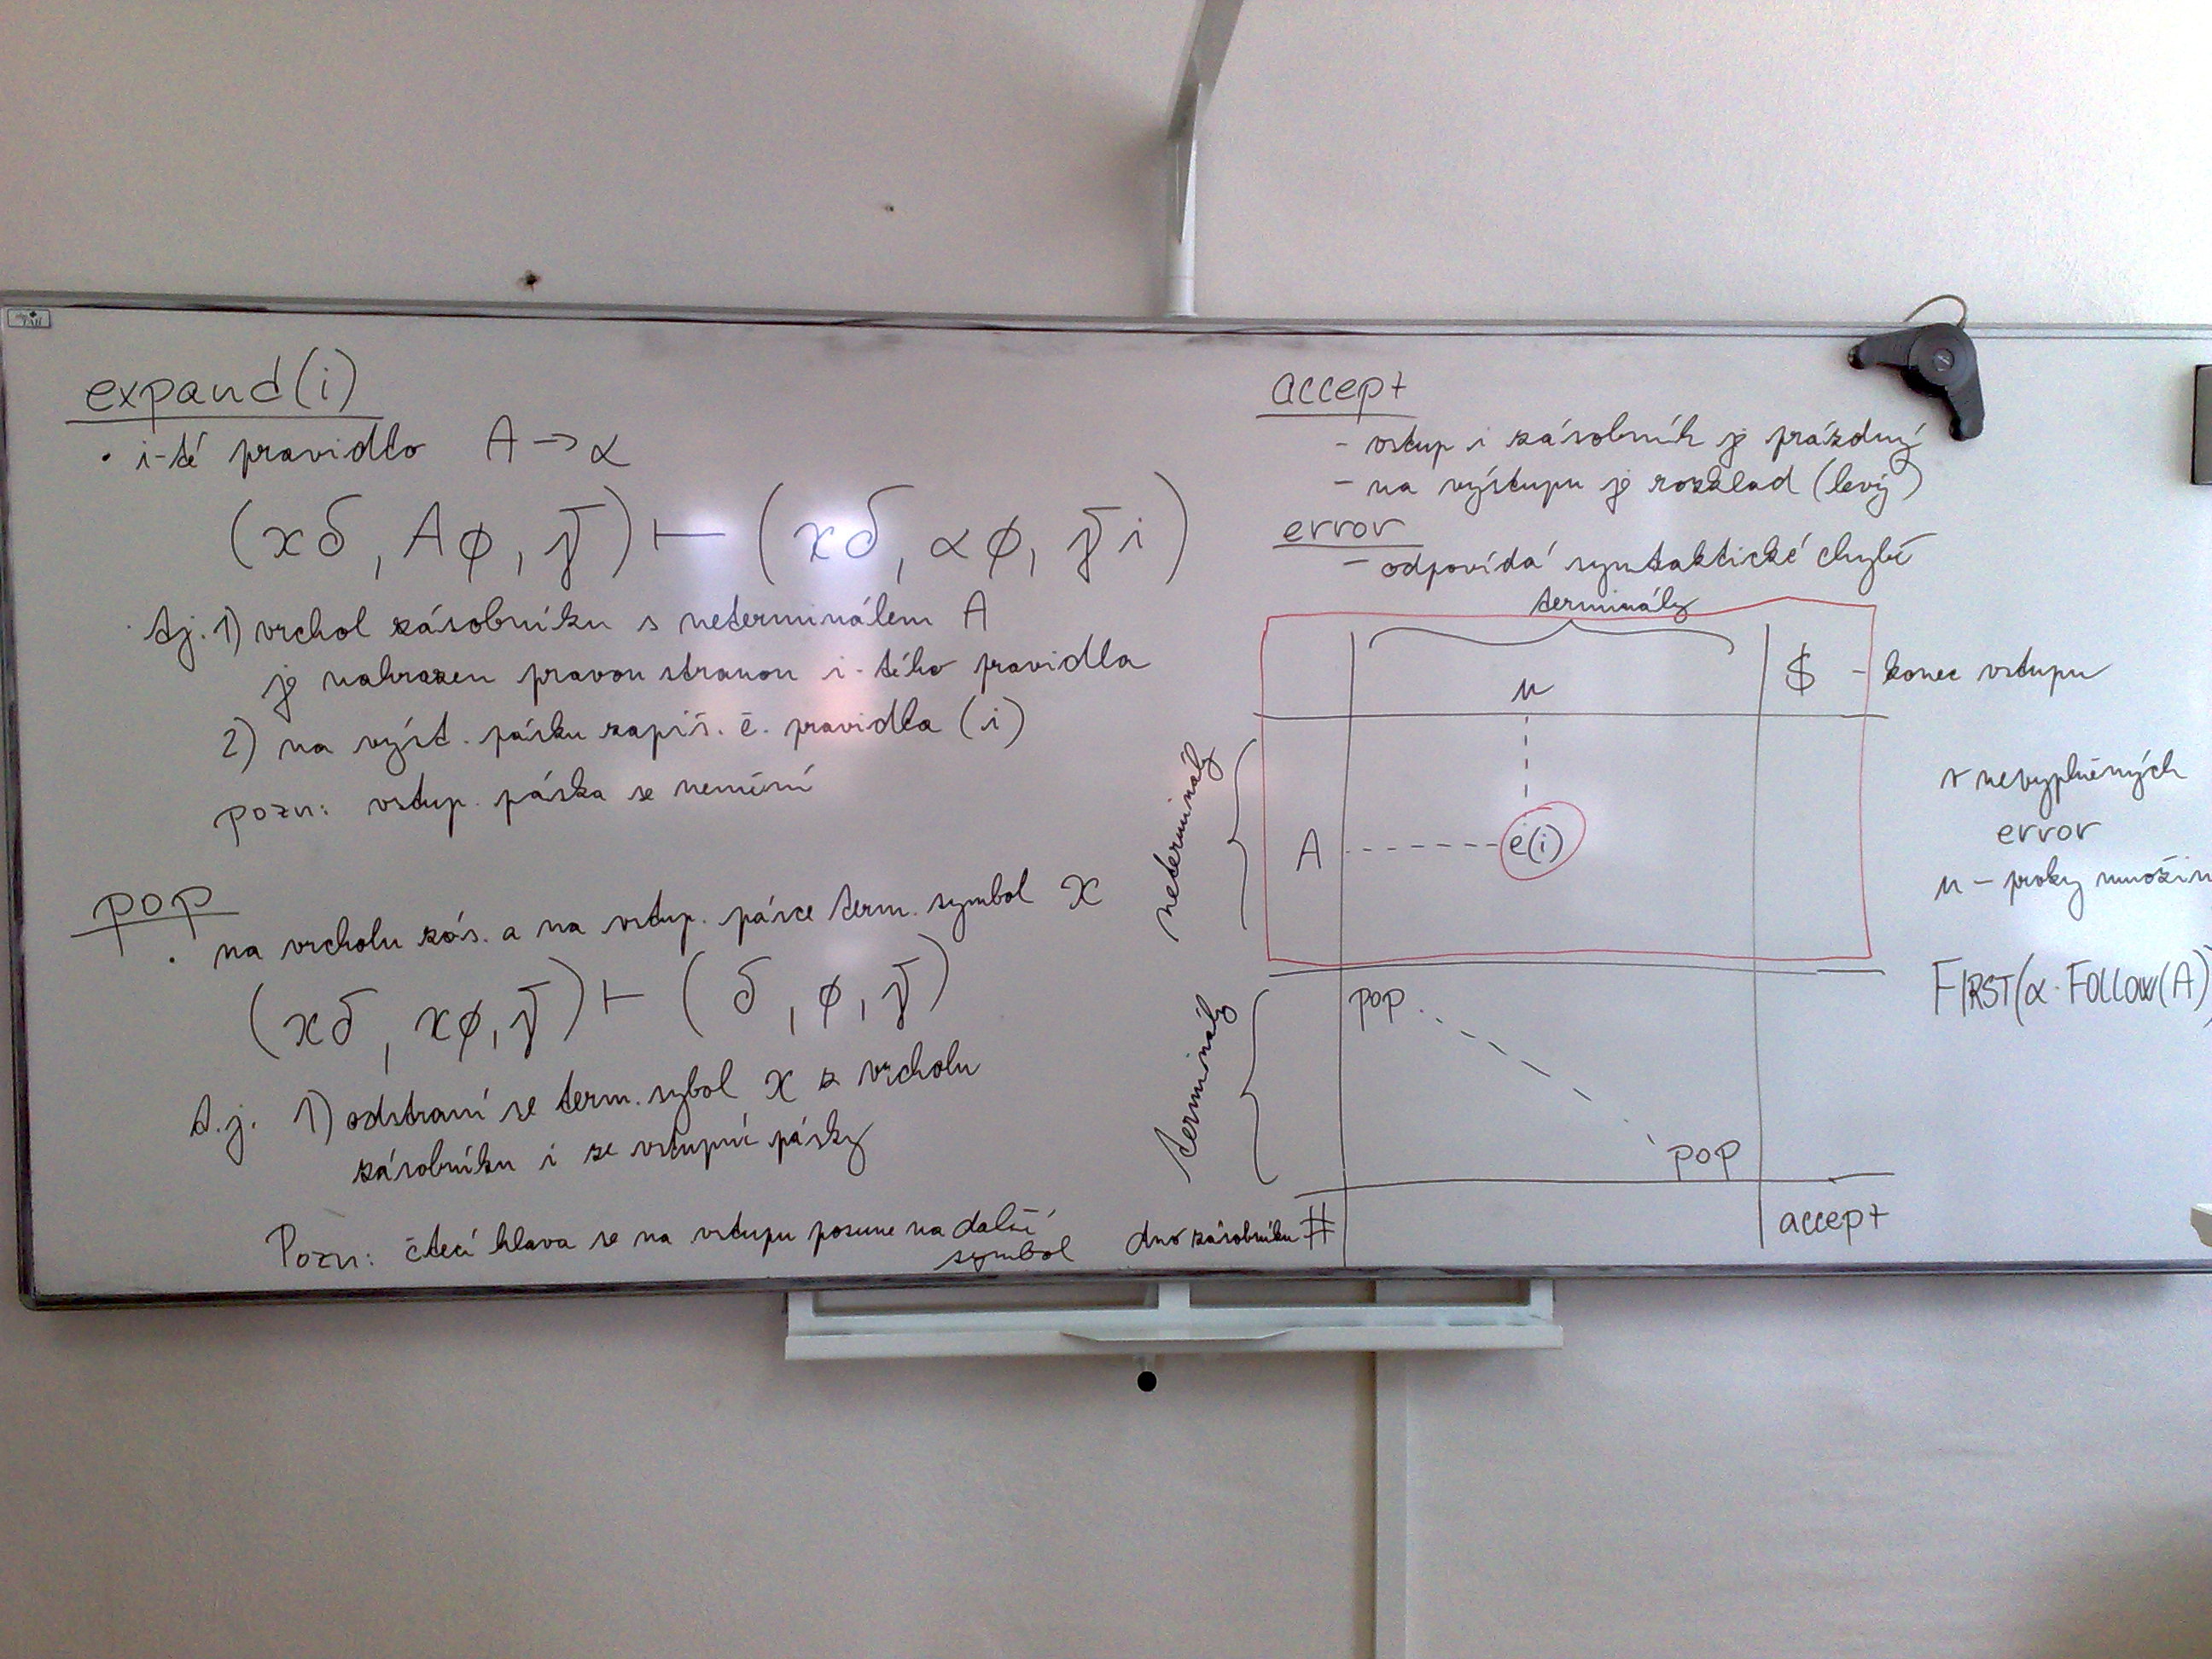 expand(i)
• i-té pravidlo A → α
(xδ, Aφ, γ̄) ⊢ (xδ, αφ, γ̄i)
tj. 1) vrchol zásobníku s neterminálem A
je nahrazen pravou stranou i-tého pravidla
2) na výst. pásku zapíš. č. pravidla (i)
pozn: vstup. páska se nemění
pop
• na vrcholu zás. a na vstup. pásce term. symbol x
(xδ, xφ, γ̄) ⊢ (δ, φ, γ̄)
t.j. 1) odstraní se term. sybol x z vrcholu
zásobníku i ze vstupní pásky
Pozn: čtecí hlava se na vstupu posune na další
symbol
accept
- vstup i zásobník je prázdný
- na výstupu je rozklad (levý)
error
- odpovídá syntaktické chybě
terminály
u
$ - konec vstupu
neterminály
A
e(i)
v nevyplněných
error
u - prvky množin
FIRST(α·FOLLOW(A))
terminály
pop
pop
dno zásobníku #
accept